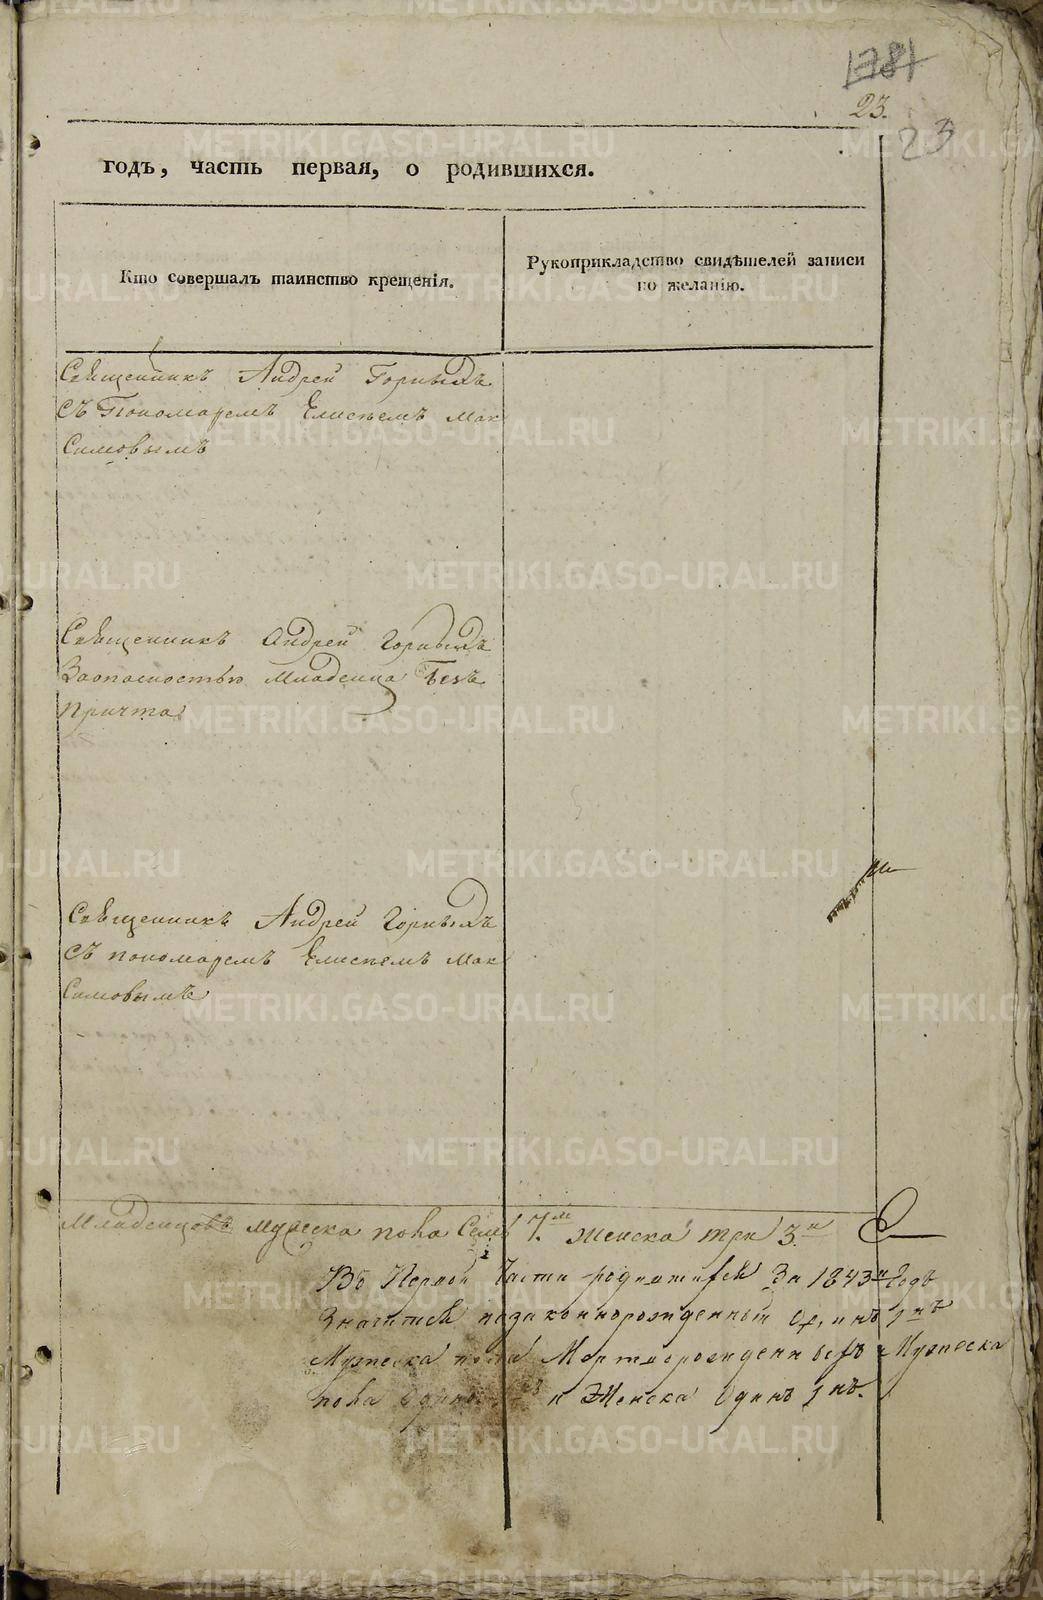 1781
23.
23
годъ, часть первая, о родившихся.
Кто совершалъ таинство крещенія.
Рукоприкладство свидѣтелей записи
по желанію.
Священникъ Андрей Горныхъ
Съ Пономаремъ Елисѣемъ Мак
Симовымъ
Священникъ Андрей Горныхъ
Заопасностью Младенца Безъ
Причта
Священникъ Андрей Горныхъ
Съ пономаремъ Елисѣемъ Мак
Симовымъ
Младенцовъ мужеска пола Семь 7.м Женска три 3.и
Въ Первой Части родившихся За 1843й Годъ
Значится незаконнорожденный Одинъ 1нъ
Мужеска пола Мертворожденныхъ Мужеска
пола Одинъ и Женска Одинъ 1нъ.
METRIKI.GASO-URAL.RU